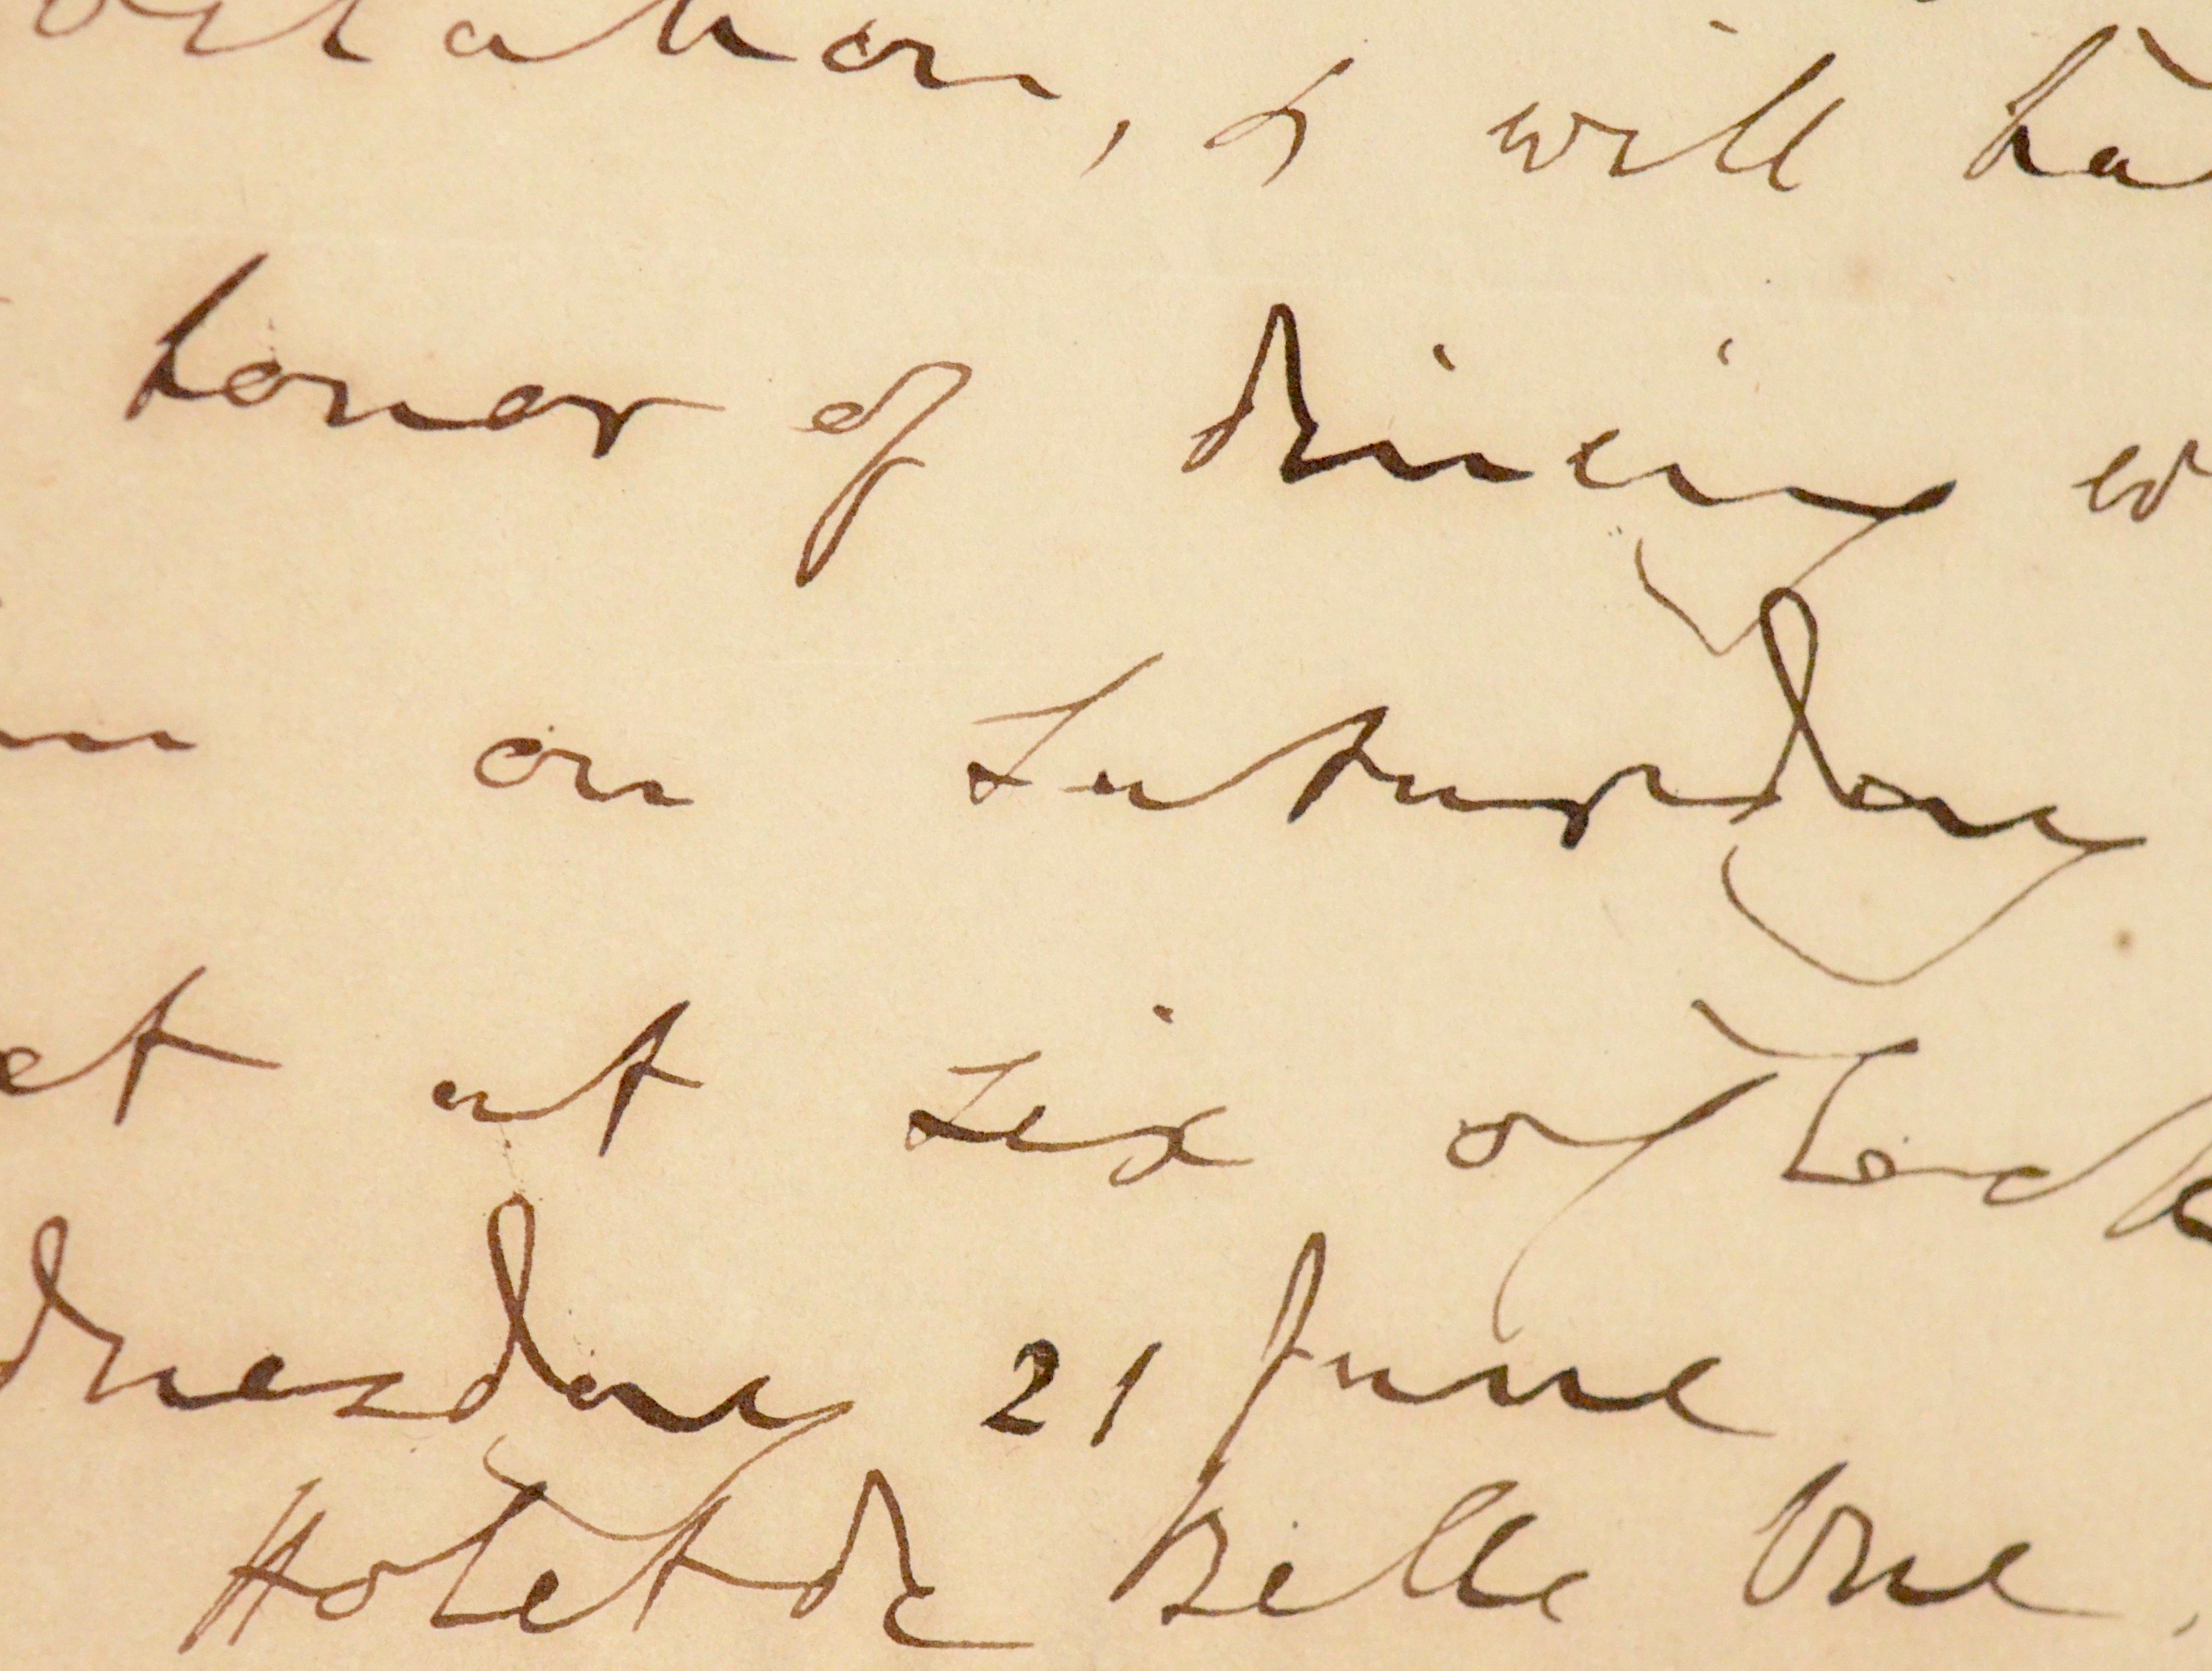 vitation, & will ha
honor of dining w
m on Saturday
et at six o'clock
dnesday 21 June
Hotel de Belle Vue.